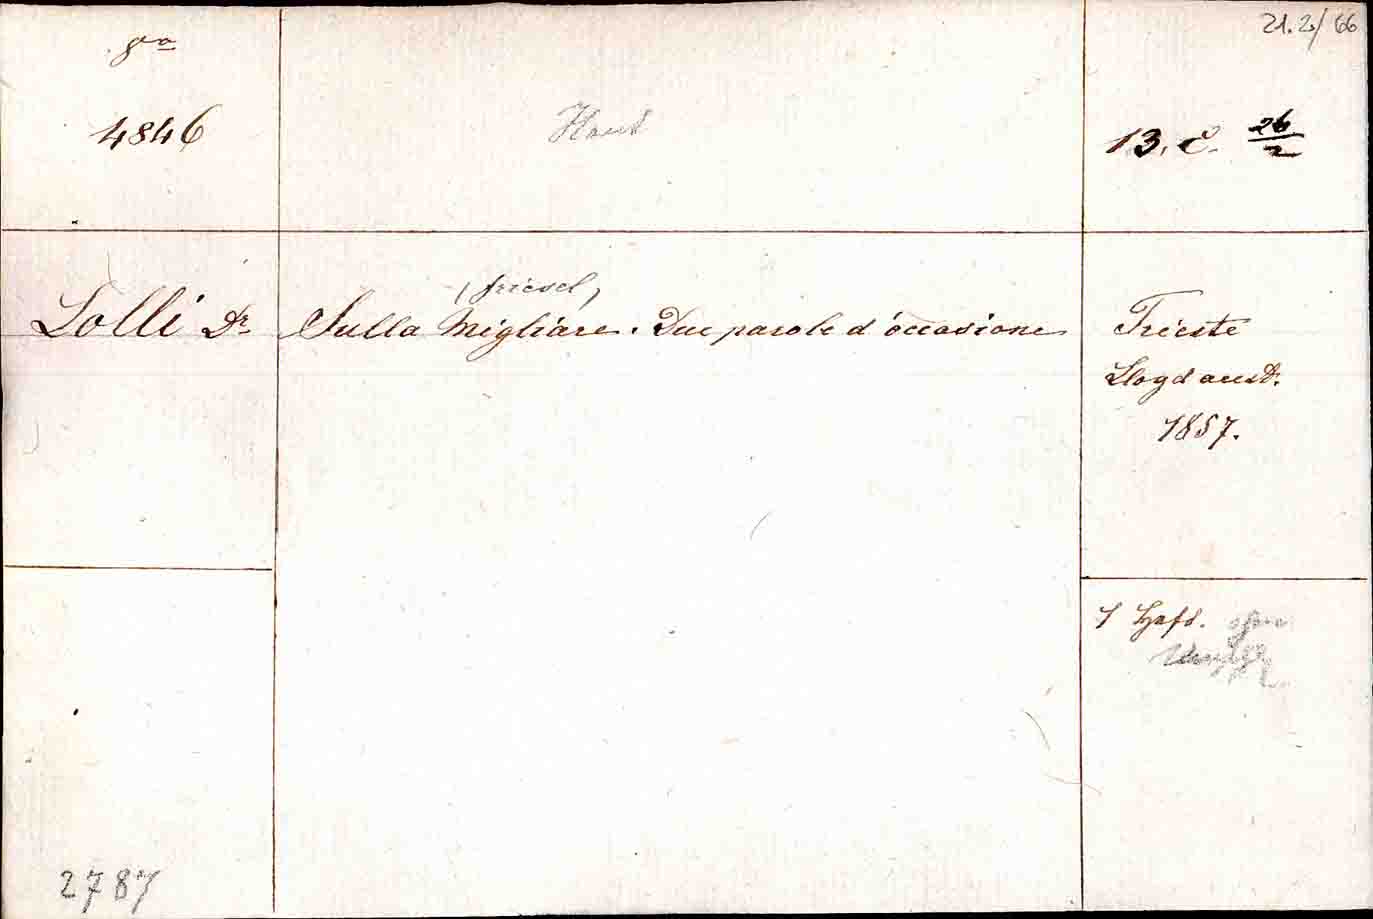 8vo
4846
Haut
21.2/66
13. C. 26/2
Lolli Dr.
(friesel)
Sulla Migliare. Due parole d'occasione
Trieste
Lloyd aust.
1857.
1 Heft.
2787